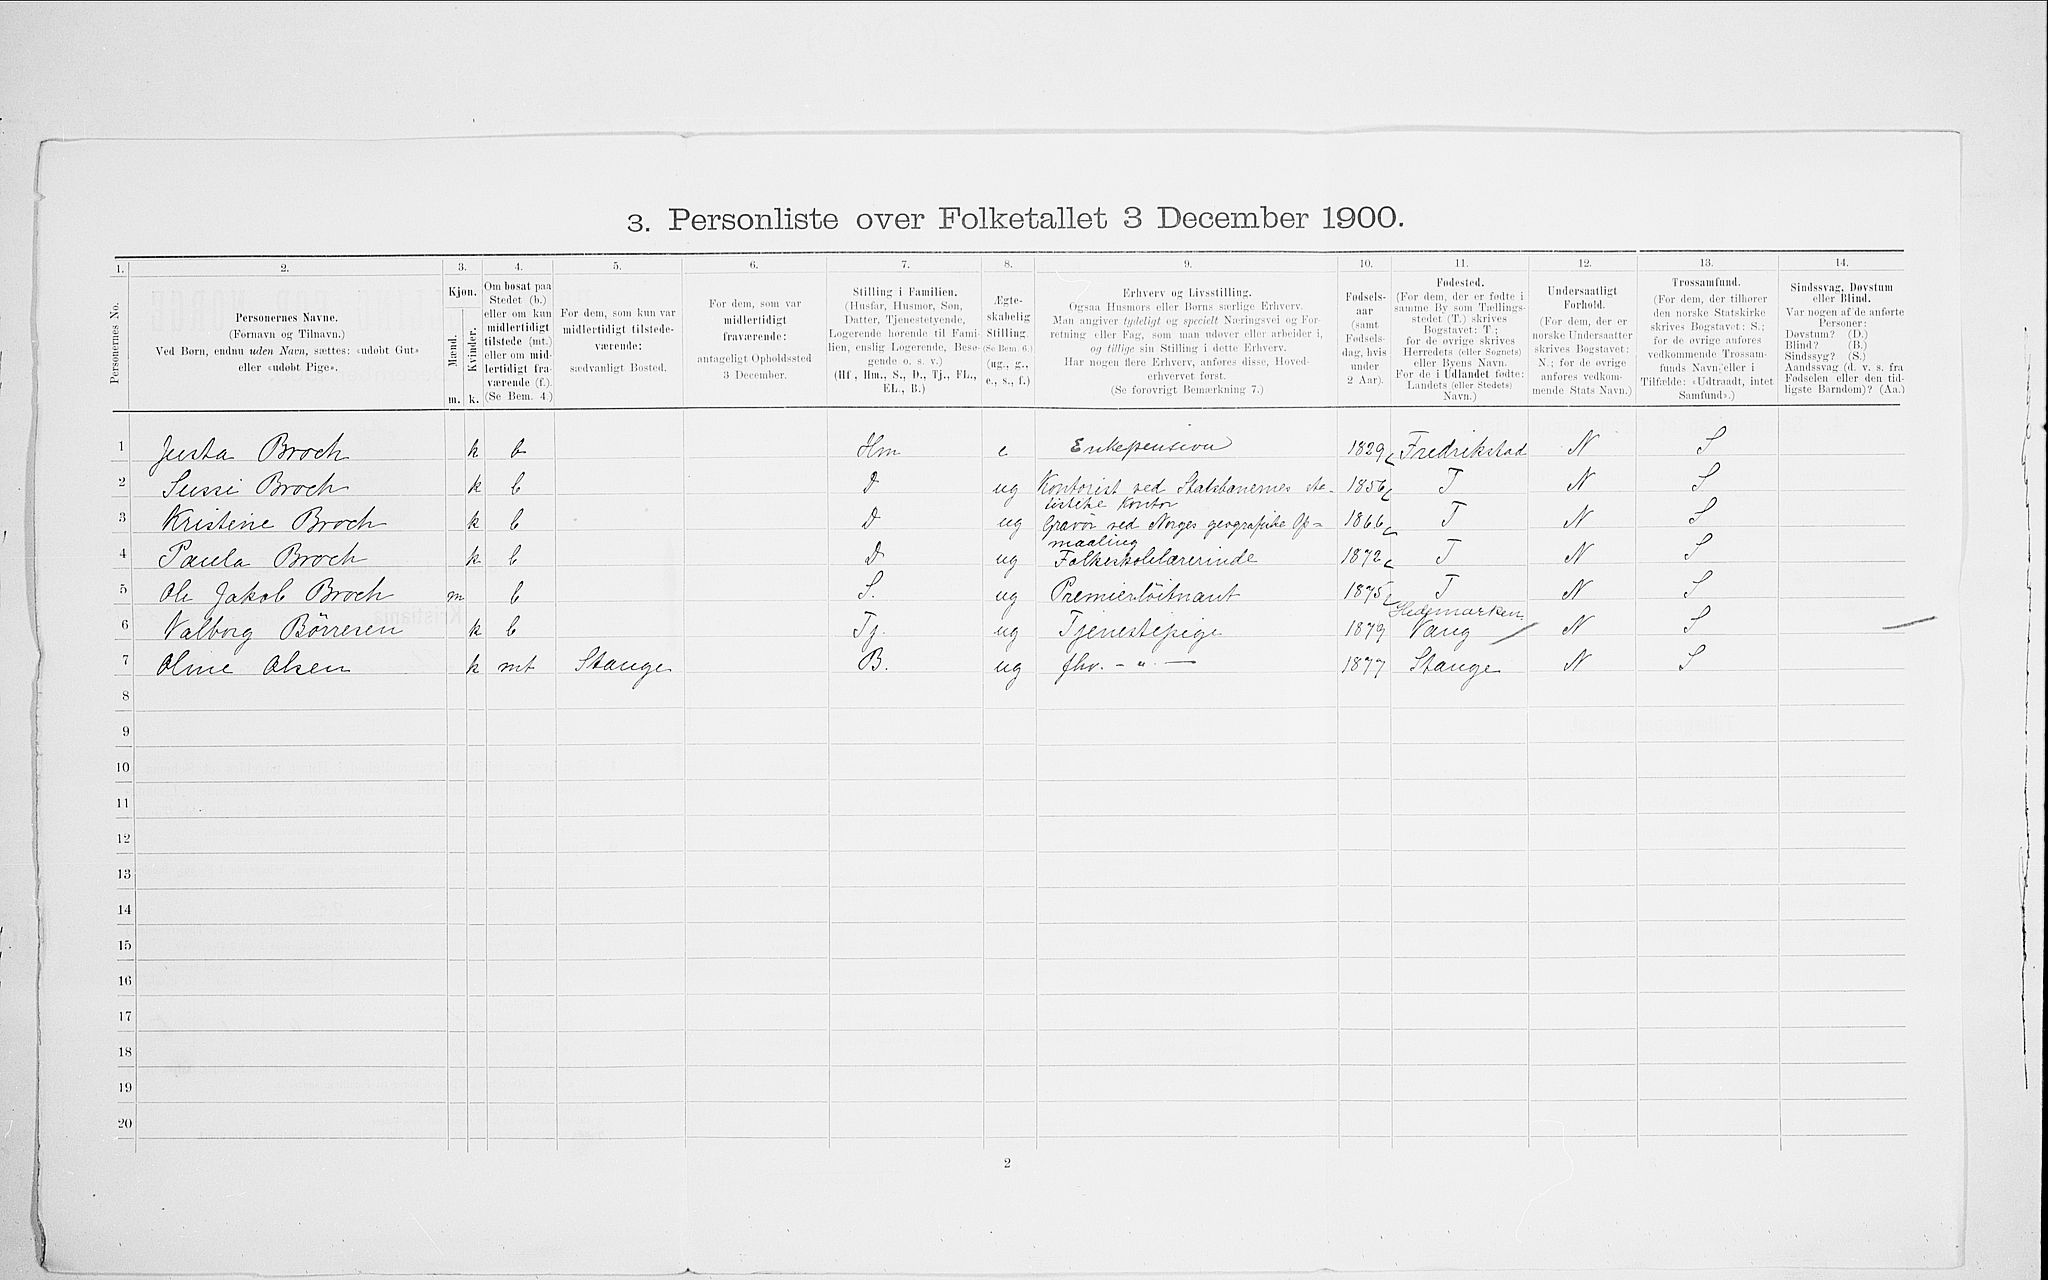 3. Personliste over Folketallet 3 December 1900.
1. 2. 3. 4. 5. 6. 7. 8. 9. 10. 11. 12. 13. 14.
Personernes No.
Personernes Navne.
(Fornavn og Tilnavn.)
Ved Børn, endnu uden Navn, sættes: «udøbt Gut»
eller «udøbt Pige».
Kjøn.
Mænd.
Kvinder.
m. k.
Om bosat paa
Stedet (b.)
eller om kun
midlertidigt
tilstede (mt.)
eller om mid-
lertidigt fra-
værende (f.).
(Se Bem. 4.)
For dem, som kun var
midlertidigt tilstede-
værende:
sædvanligt Bosted.
For dem, som var
midlertidigt
fraværende:
antageligt Opholdssted
3 December.
Stilling i Familien.
(Husfar, Husmor, Søn,
Datter, Tjenestetyende,
Logerende hørende til Fami-
lien, enslig Logerende, Besø-
gende o. s. v.)
(Hf., Hm., S., D., Tj., FL.,
EL., B.)
Ægte-
skabelig
Stilling.
(Se Bem. 6.)
(ug., g.,
e., s., f.)
Erhverv og Livsstilling.
Ogsaa Husmors eller Børns særlige Erhverv.
Man angiver tydeligt og specielt Næringsvei og For-
retning eller Fag, som man udøver eller arbeider i,
og tillige sin Stilling i dette Erhverv.
Har nogen flere Erhverv, anføres disse, Hoved-
erhvervet først.
(Se forøvrigt Bemærkning 7.)
Fødsels-
aar
(samt
Fødsels-
dag, hvis
under
2 Aar).
Fødested.
(For dem, der er fødte i
samme By som Tællings-
stedet (T.) skrives
Bogstavet: T.;
for de øvrige skrives
Herredets (eller Sognets)
eller Byens Navn.
For de i Udlandet fødte:
Landets (eller Stedets)
Navn.)
Undersaatligt
Forhold.
(For dem, der er
norske Undersaatter
skrives Bogstavet:
N.; for de øvrige
anføres vedkom-
mende Stats Navn.)
Trossamfund.
(For dem, der tilhører
den norske Statskirke
skrives Bogstavet: S.;
for de øvrige anføres
vedkommende Trossam-
funds Navn, eller i
Tilfælde: «Udtraadt, intet
Samfund».)
Sindssvag, Døvstum
eller Blind.
Var nogen af de anførte
Personer:
Døvstum? (D.)
Blind? (B.)
Sindssyg? (S.)
Aandssvag (d. v. s. fra
Fødselen eller den tid-
ligste Barndom)? (Aa.)
1 Justa Broch k b Hm e Enkepension 1829 Fredrikstad N S
2 Sussi Broch k b D ug Kontorist ved Statsbanernes sta- 1856 T N S
tistiske Kontor
3 Kristine Broch k b D ug Gravør ved Norges geografiske Op- 1866 T N S
maaling
4 Paula Broch k b D ug Folkeskolelærerinde 1872 T N S
5 Ole Jakob Broch m b S. ug Premierløitnant 1875 T N S
Hedemarken
6 Valborg Börresen k b Tj. ug Tjenestepige 1879 Vang N S
7 Oline Olsen k mt Stange B. ug fhv. - " - 1877 Stange N S
8
9
10
11
12
13
14
15
16
17
18
19
20
2